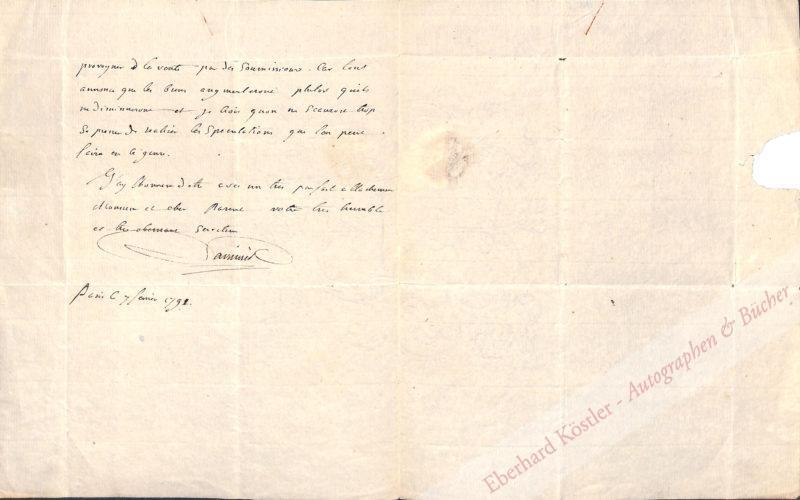 provenant de la vente par des Soumissions. Car tout
annonce que les biens augmenteront plutot quils
ne diminueront et je crois quon ne Scauroit trop
Se presser de realiser les Speculations que lon peut
faire en ce genre.
J'ay lhonneur d'etre avec un tres parfait attachement
Monsieur et cher Parent votre tres humble
et tres obeissant Serviteur
Paris le 7 fevrier 1791.
Eberhard Köstler - Autographen & Bücher